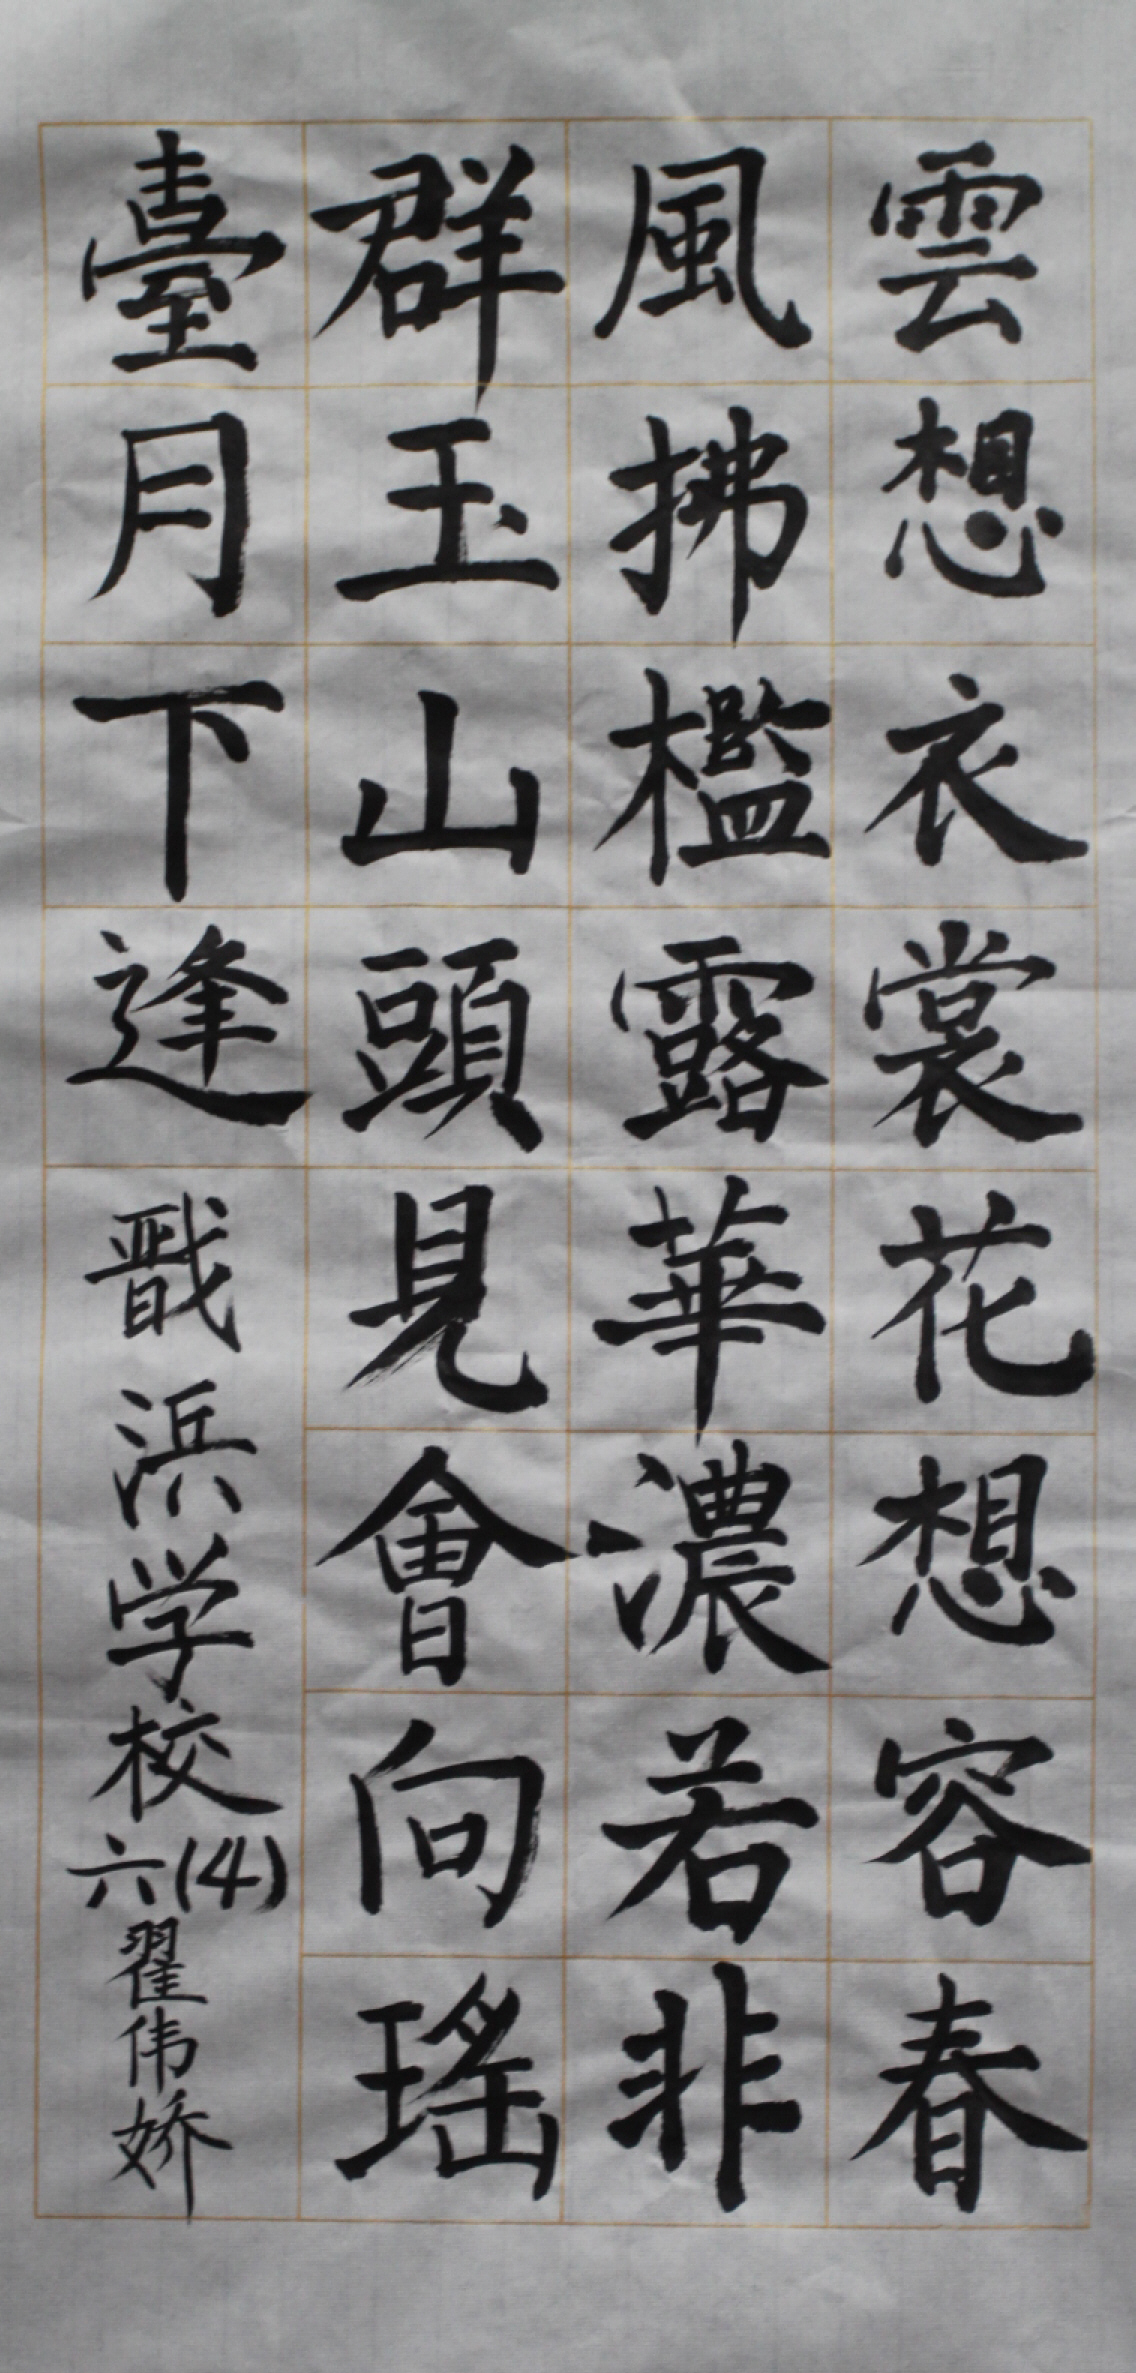 雲想衣裳花想容春
風拂檻露華濃若非
群玉山頭見會向瑤
臺月下逢
戬浜学校六(4)翟伟娇